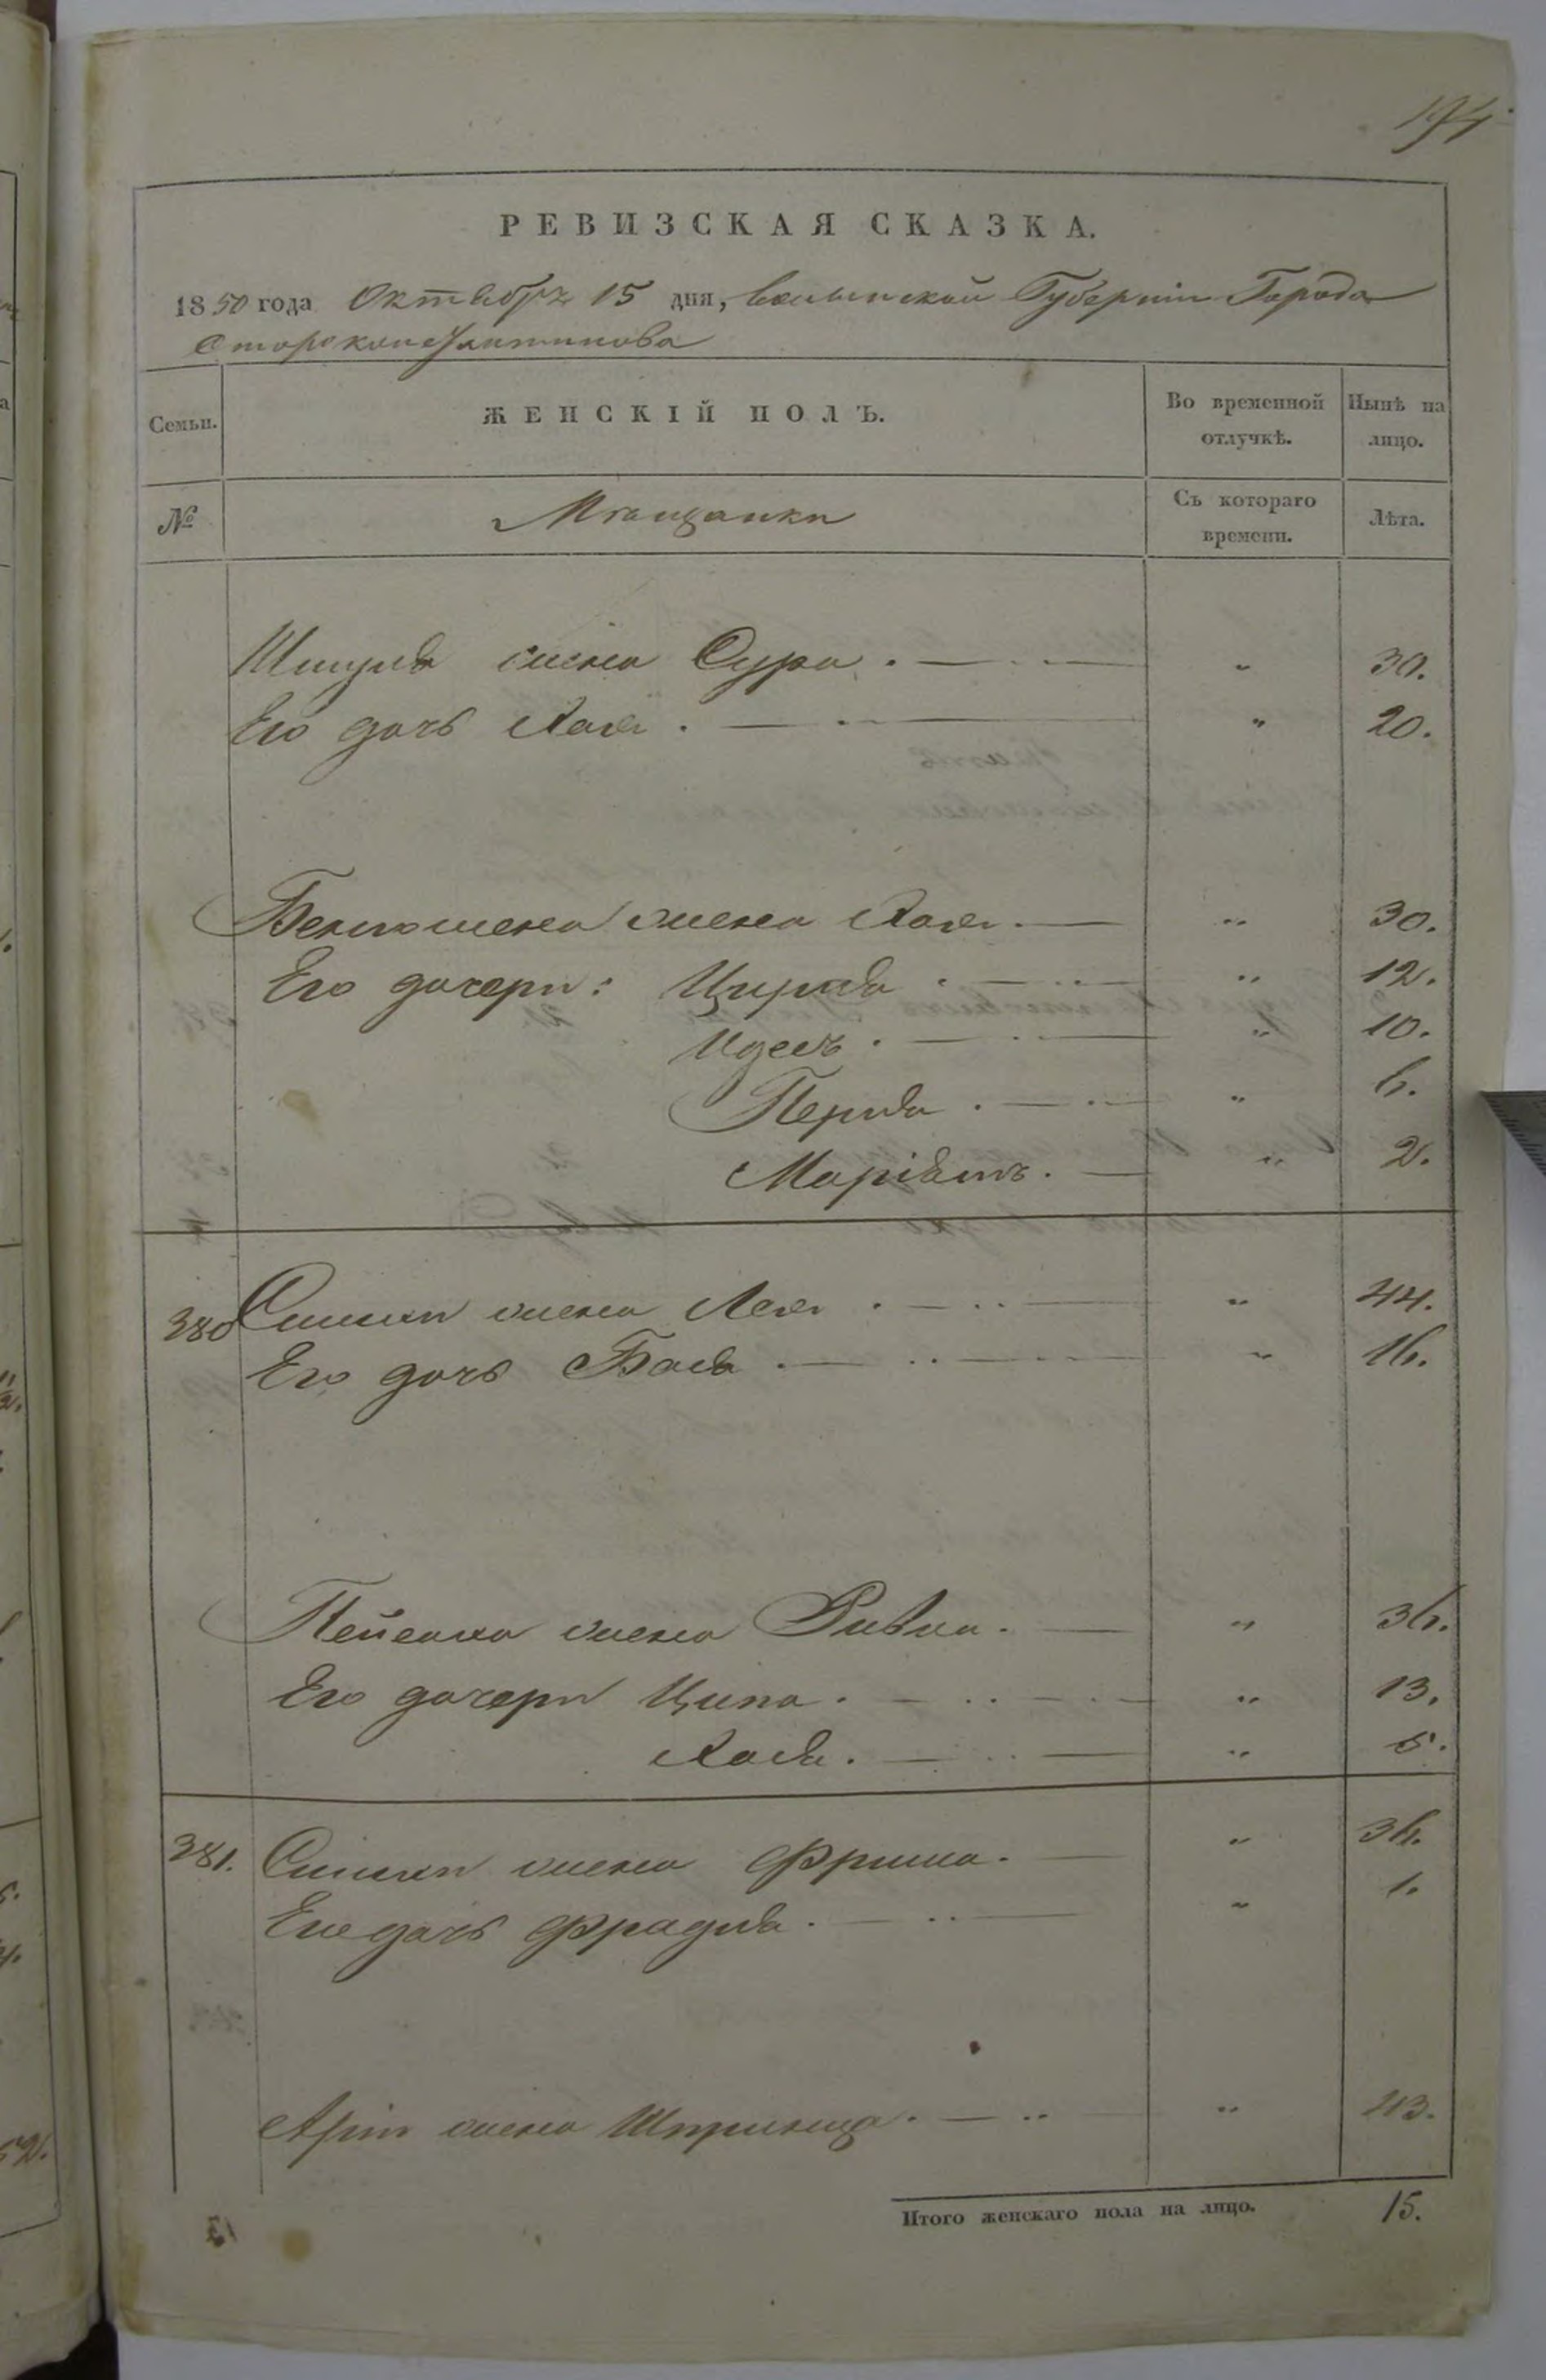 194
РЕВИЗСКАЯ СКАЗКА.
1850 года Октября 15 дня, Волынской Губерніи Города
Староконстантинова
Семьи. ЖЕНСКІЙ ПОЛЪ. Во временной отлучкѣ. Нынѣ на лицо.
№ Мѣщанки Съ котораго времени. Лѣта.
жена Сура . — . — " 30.
Его дочь Хая . — . — " 20.
Беніомена жена Хая . — " 30.
Его дочери: Цирля . — . — " 12.
Идесъ . — . — " 10.
Перля . — . — " 6.
Маріямъ . — " 2.
380 Симхи жена Лея . — .. — " 44.
Его дочь Бася . — .. — " 16.
Пейсаха жена Ривка . — " 36.
Его дочери Ципа . — .. — . — " 13.
Хася . — .. — " 5.
381. Симхи жена Фрима . — " 36.
Его дочь Фрадля . — .. — " 1.
Арія жена Шпринца . — .. — " 43.
Итого женскаго пола на лицо. 15.